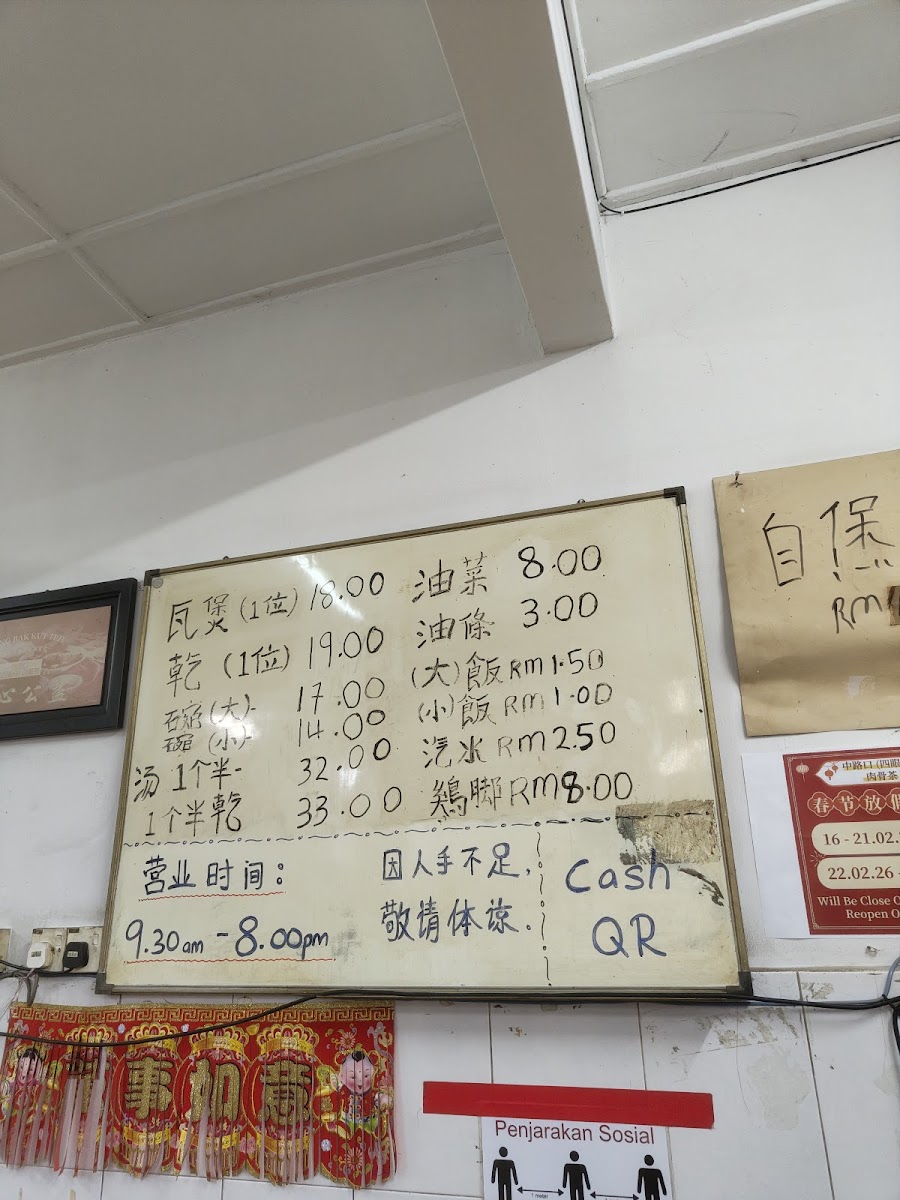 瓦煲(1位) 18.00
乾(1位) 19.00
碗(大)- 17.00
碗(小)- 14.00
汤1个半- 32.00
1个半乾 33.00
油菜 8.00
油條 3.00
(大)飯 RM 1.50
(小)飯 RM 1.00
汽水 RM 2.50
鷄脚 RM 8.00
营业时间:
9.30am - 8.00pm
因人手不足,
敬请体谅.
Cash
QR
自保
RM
BAK KUT TEH
心公
中路口(四眼
肉骨茶
春节放假
16 - 21.02.
22.02.26
Will Be Close O
Reopen O
事如意
Penjarakan Sosial
1 meter